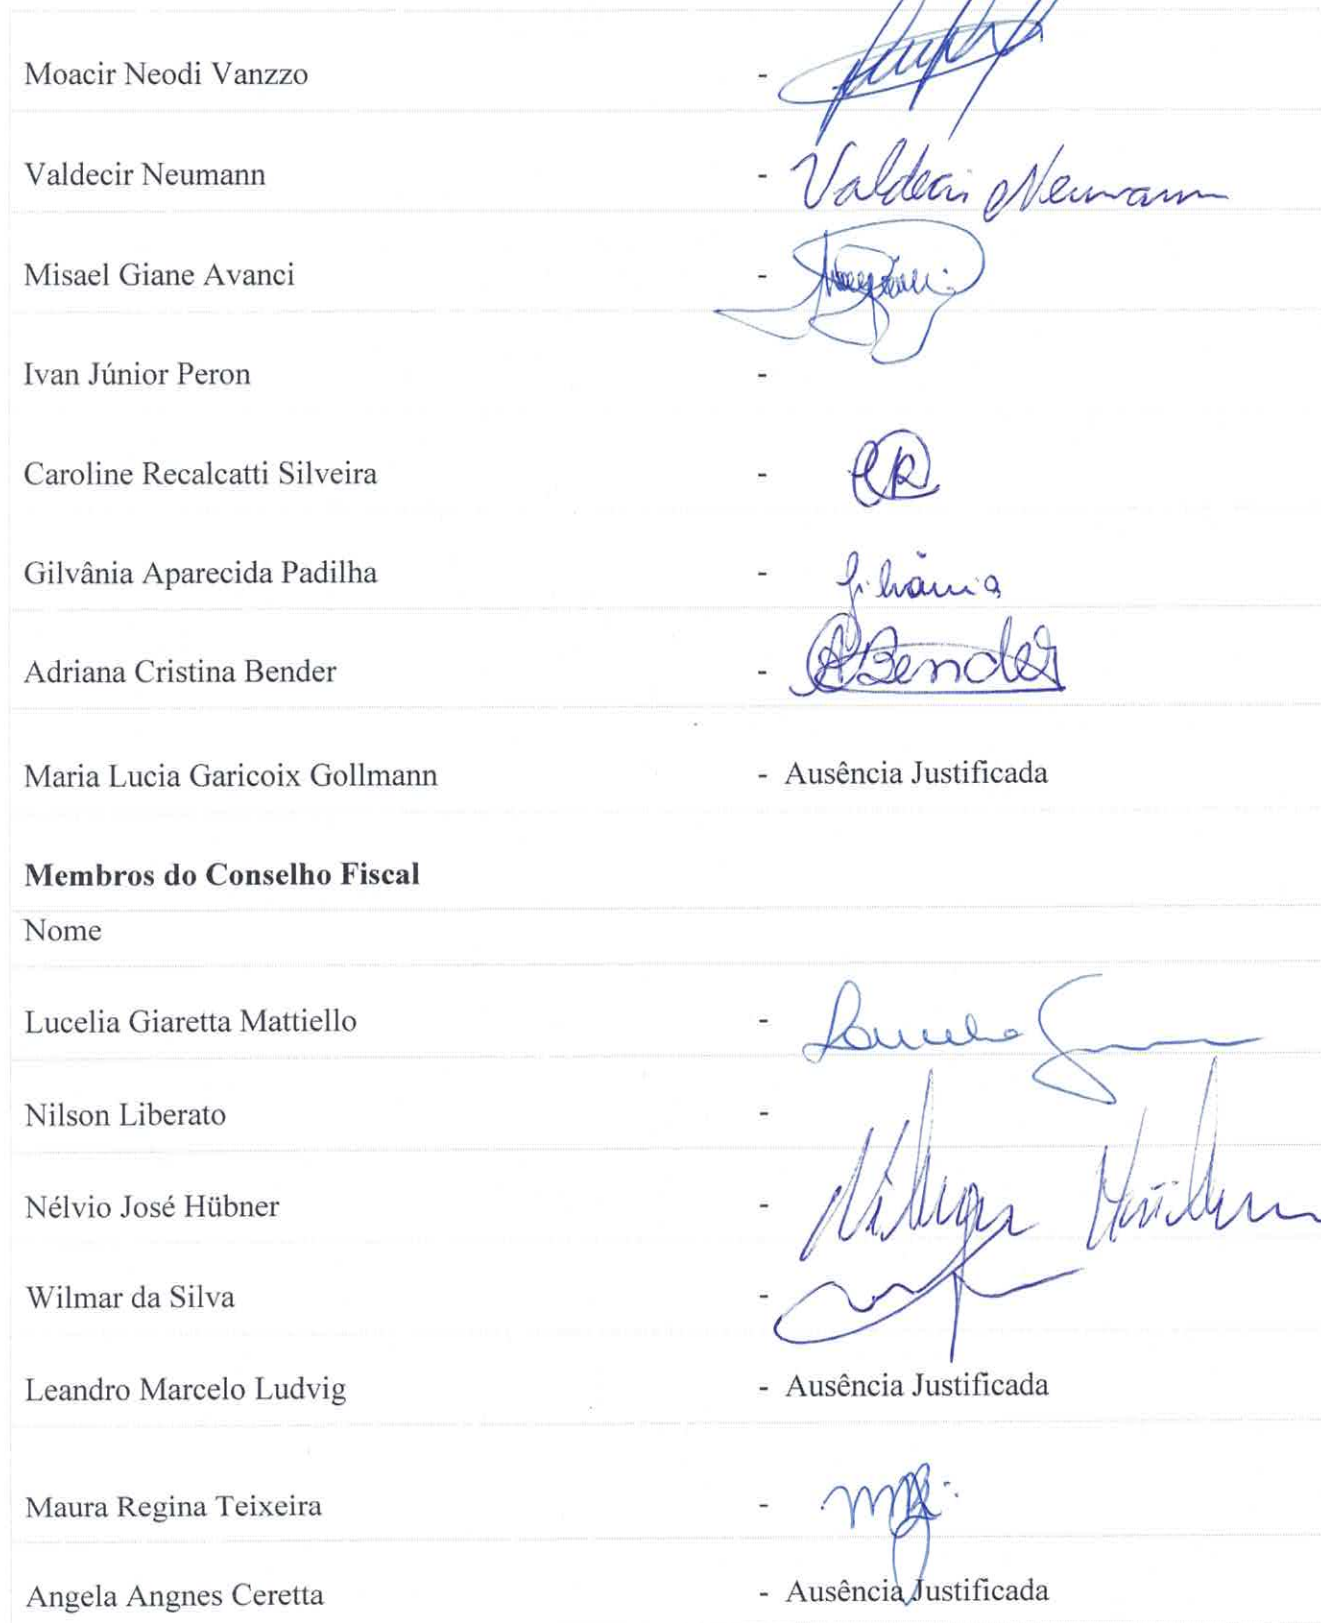 Moacir Neodi Vanzzo -
Valdecir Neumann - Valdecir Neumann
Misael Giane Avanci -
Ivan Júnior Peron -
Caroline Recalcatti Silveira - CR
Gilvânia Aparecida Padilha - Gilvânia
Adriana Cristina Bender - ABender
Maria Lucia Garicoix Gollmann - Ausência Justificada
Membros do Conselho Fiscal
Nome
Lucelia Giaretta Mattiello -
Nilson Liberato -
Nélvio José Hübner -
Wilmar da Silva -
Leandro Marcelo Ludvig - Ausência Justificada
Maura Regina Teixeira -
Angela Angnes Ceretta - Ausência Justificada